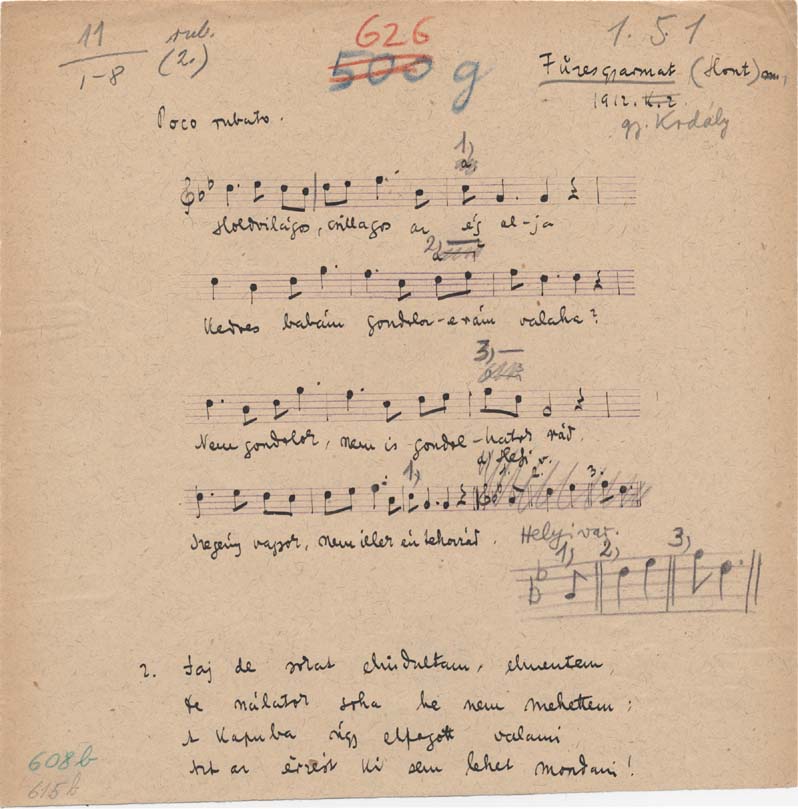 11 rub. 626 1. 5. 1
1-8 (2.) 500 g Füzesgyarmat (Hont) m.,
1912. K. 2.
Poco rubato. gy. Krdály
1,)
Holdvilágos, csillagos az ég al-ja
2,)
Kedves babám gondolsz-e rám valaha?
3,)
Nem gondolok, nem is gondol-hatok rád.
1,) 1. 2. 3.
Szegény vagyok, nem illek én tehozzád. Helyi var.
1,) 2,) 3,)
2. Jaj de sokat elindultam, elmentem,
De nálatok soha be nem mehettem;
A kapuba úgy elfogott valami
Azt az érzést ki sem lehet mondani!
608b
615b